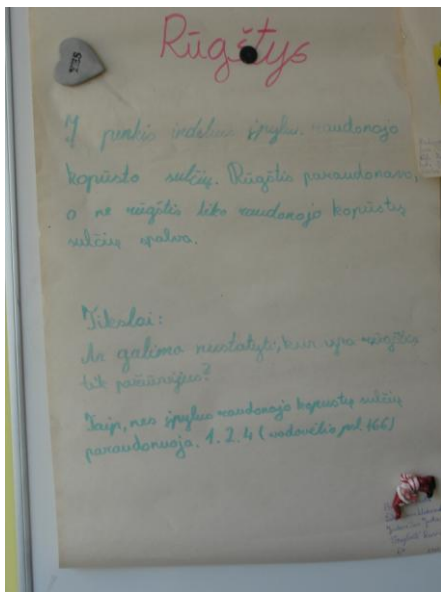 Rūgštys
YES
Į penkis indelius įpylu. raudonojo
kopūsto sulčių. Rūgštis paraudonavo,
o ne rūgštis liko raudonojo kopūstų
sulčių spalva.
Tikslai:
Ar galima nustatyti, kur yra rūgščių
tik pažiūrėjus?
Taip, nes įpylus raudonojo kopūstų sulčių
paraudonuoja. 1.2.4 (vadovėlio psl. 166)